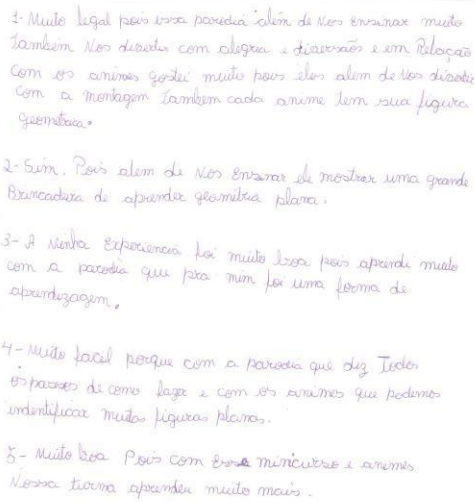 1- Muito legal pois essa parodia além de nos Ensinar muito
também Nos diverte com alegria e diversões e em Relação
com os animes gostei muito pois eles alem de Nos diverti
com a montagem tambem cada anime tem sua figura
geometrica.
2- Sim. Pois alem de Nos Ensinar ele mostrar uma grande
Brincadura de aprender geométria plana.
3- A Minha Experiencia foi muito boa pois aprendi muito
com a parodia que pra mim foi uma forma de
aprendizagem.
4- Muito facil porque com a parodia que diz Todos
os passos de como fazer e com os animes que podemos
indentificar muitas figuras planas.
5- Muito boa Pois com Esse minicurso e animes
Nossa turma aprender muito mais.